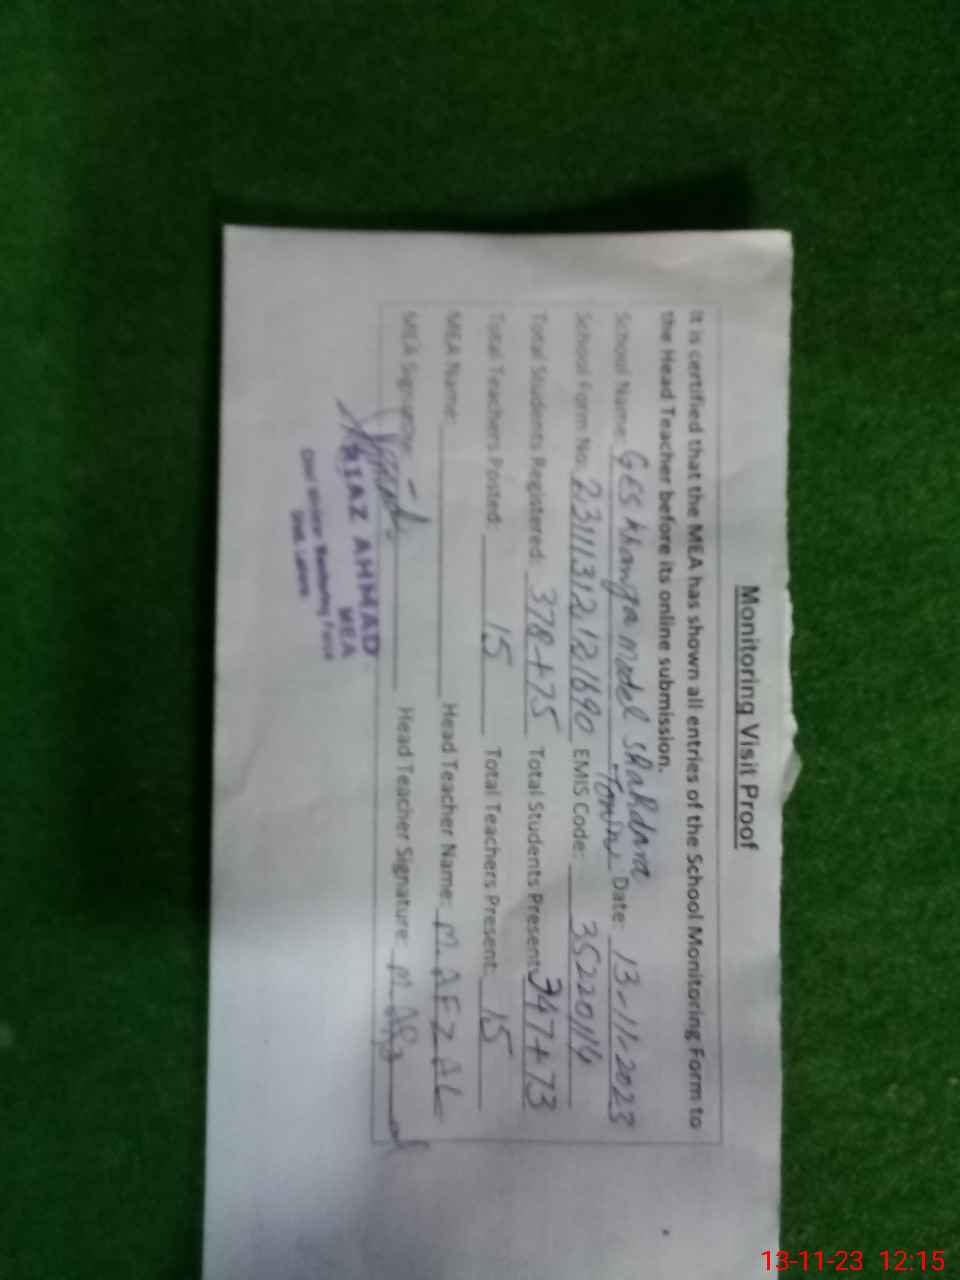 Monitoring Visit Proof
It is certified that the MEA has shown all entries of the School Monitoring Form to
the Head Teacher before its online submission.
School Name: GES Khanga model Shahdara Town, Date: 13-11-2023
School Form No: 23111312121690 EMIS Code: 35220114
Total Students Registered: 378+75 Total Students Present: 347+73
Total Teachers Posted: 15 Total Teachers Present: 15
MEA Name: Head Teacher Name: M. AFZAL
MEA Signature: Head Teacher Signature: M. Afzal
RIAZ AHMAD
MEA
Monitoring Force
13-11-23 12:15